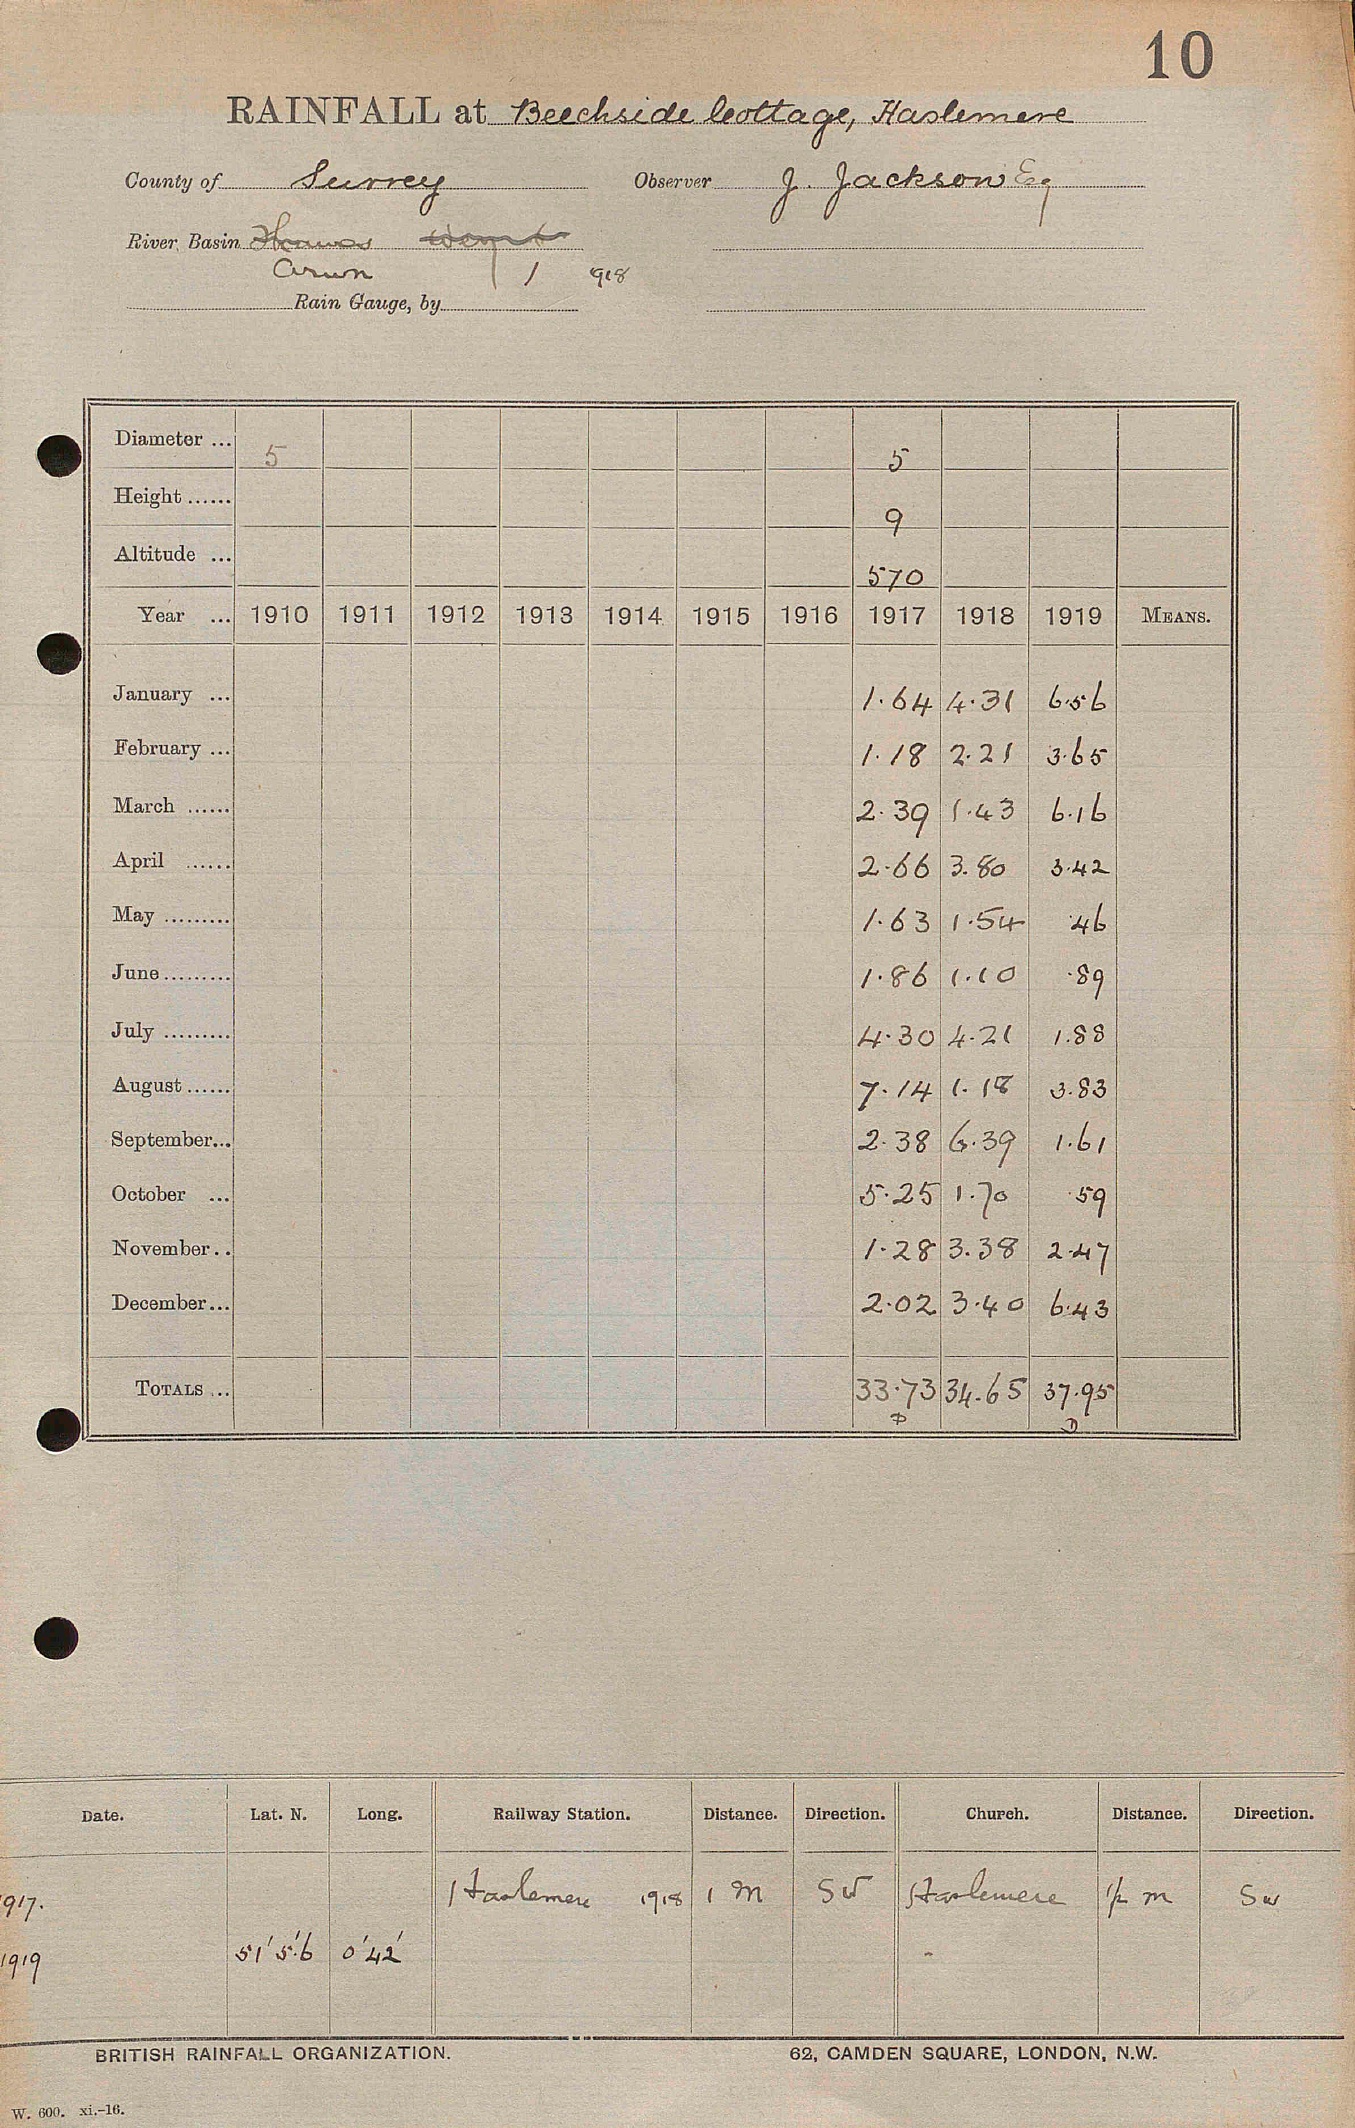 10
RAINFALL at Beechside Cottage, Haslemere
County of Surrey Observer J. Jackson Esq
River Basin Thames
Arun 1 1918
Rain Gauge, by
Diameter ... 5 5
Height ...... 9
Altitude ... 570
Year ... 1910 1911 1912 1913 1914 1915 1916 1917 1918 1919 MEANS.
January ... 1.64 4.31 6.56
February ... 1.18 2.21 3.65
March ...... 2.39 1.43 6.16
April ...... 2.66 3.80 3.42
May ......... 1.63 1.54 .46
June ......... 1.86 1.10 .89
July ......... 4.30 4.21 1.88
August ...... 7.14 1.18 3.83
September... 2.38 6.39 1.61
October ... 5.25 1.70 .59
November.. 1.28 3.38 2.47
December... 2.02 3.40 6.43
TOTALS ... 33.73 34.65 37.95
D D
Date. Lat. N. Long. Railway Station. Distance. Direction. Church. Distance. Direction.
1917. Haslemere 1918 1 m SW Haslemere 1/2 m SW
1919 51° 5'.6 0° 42'
BRITISH RAINFALL ORGANIZATION. 62, CAMDEN SQUARE, LONDON, N.W.
W. 600. xi.-16.